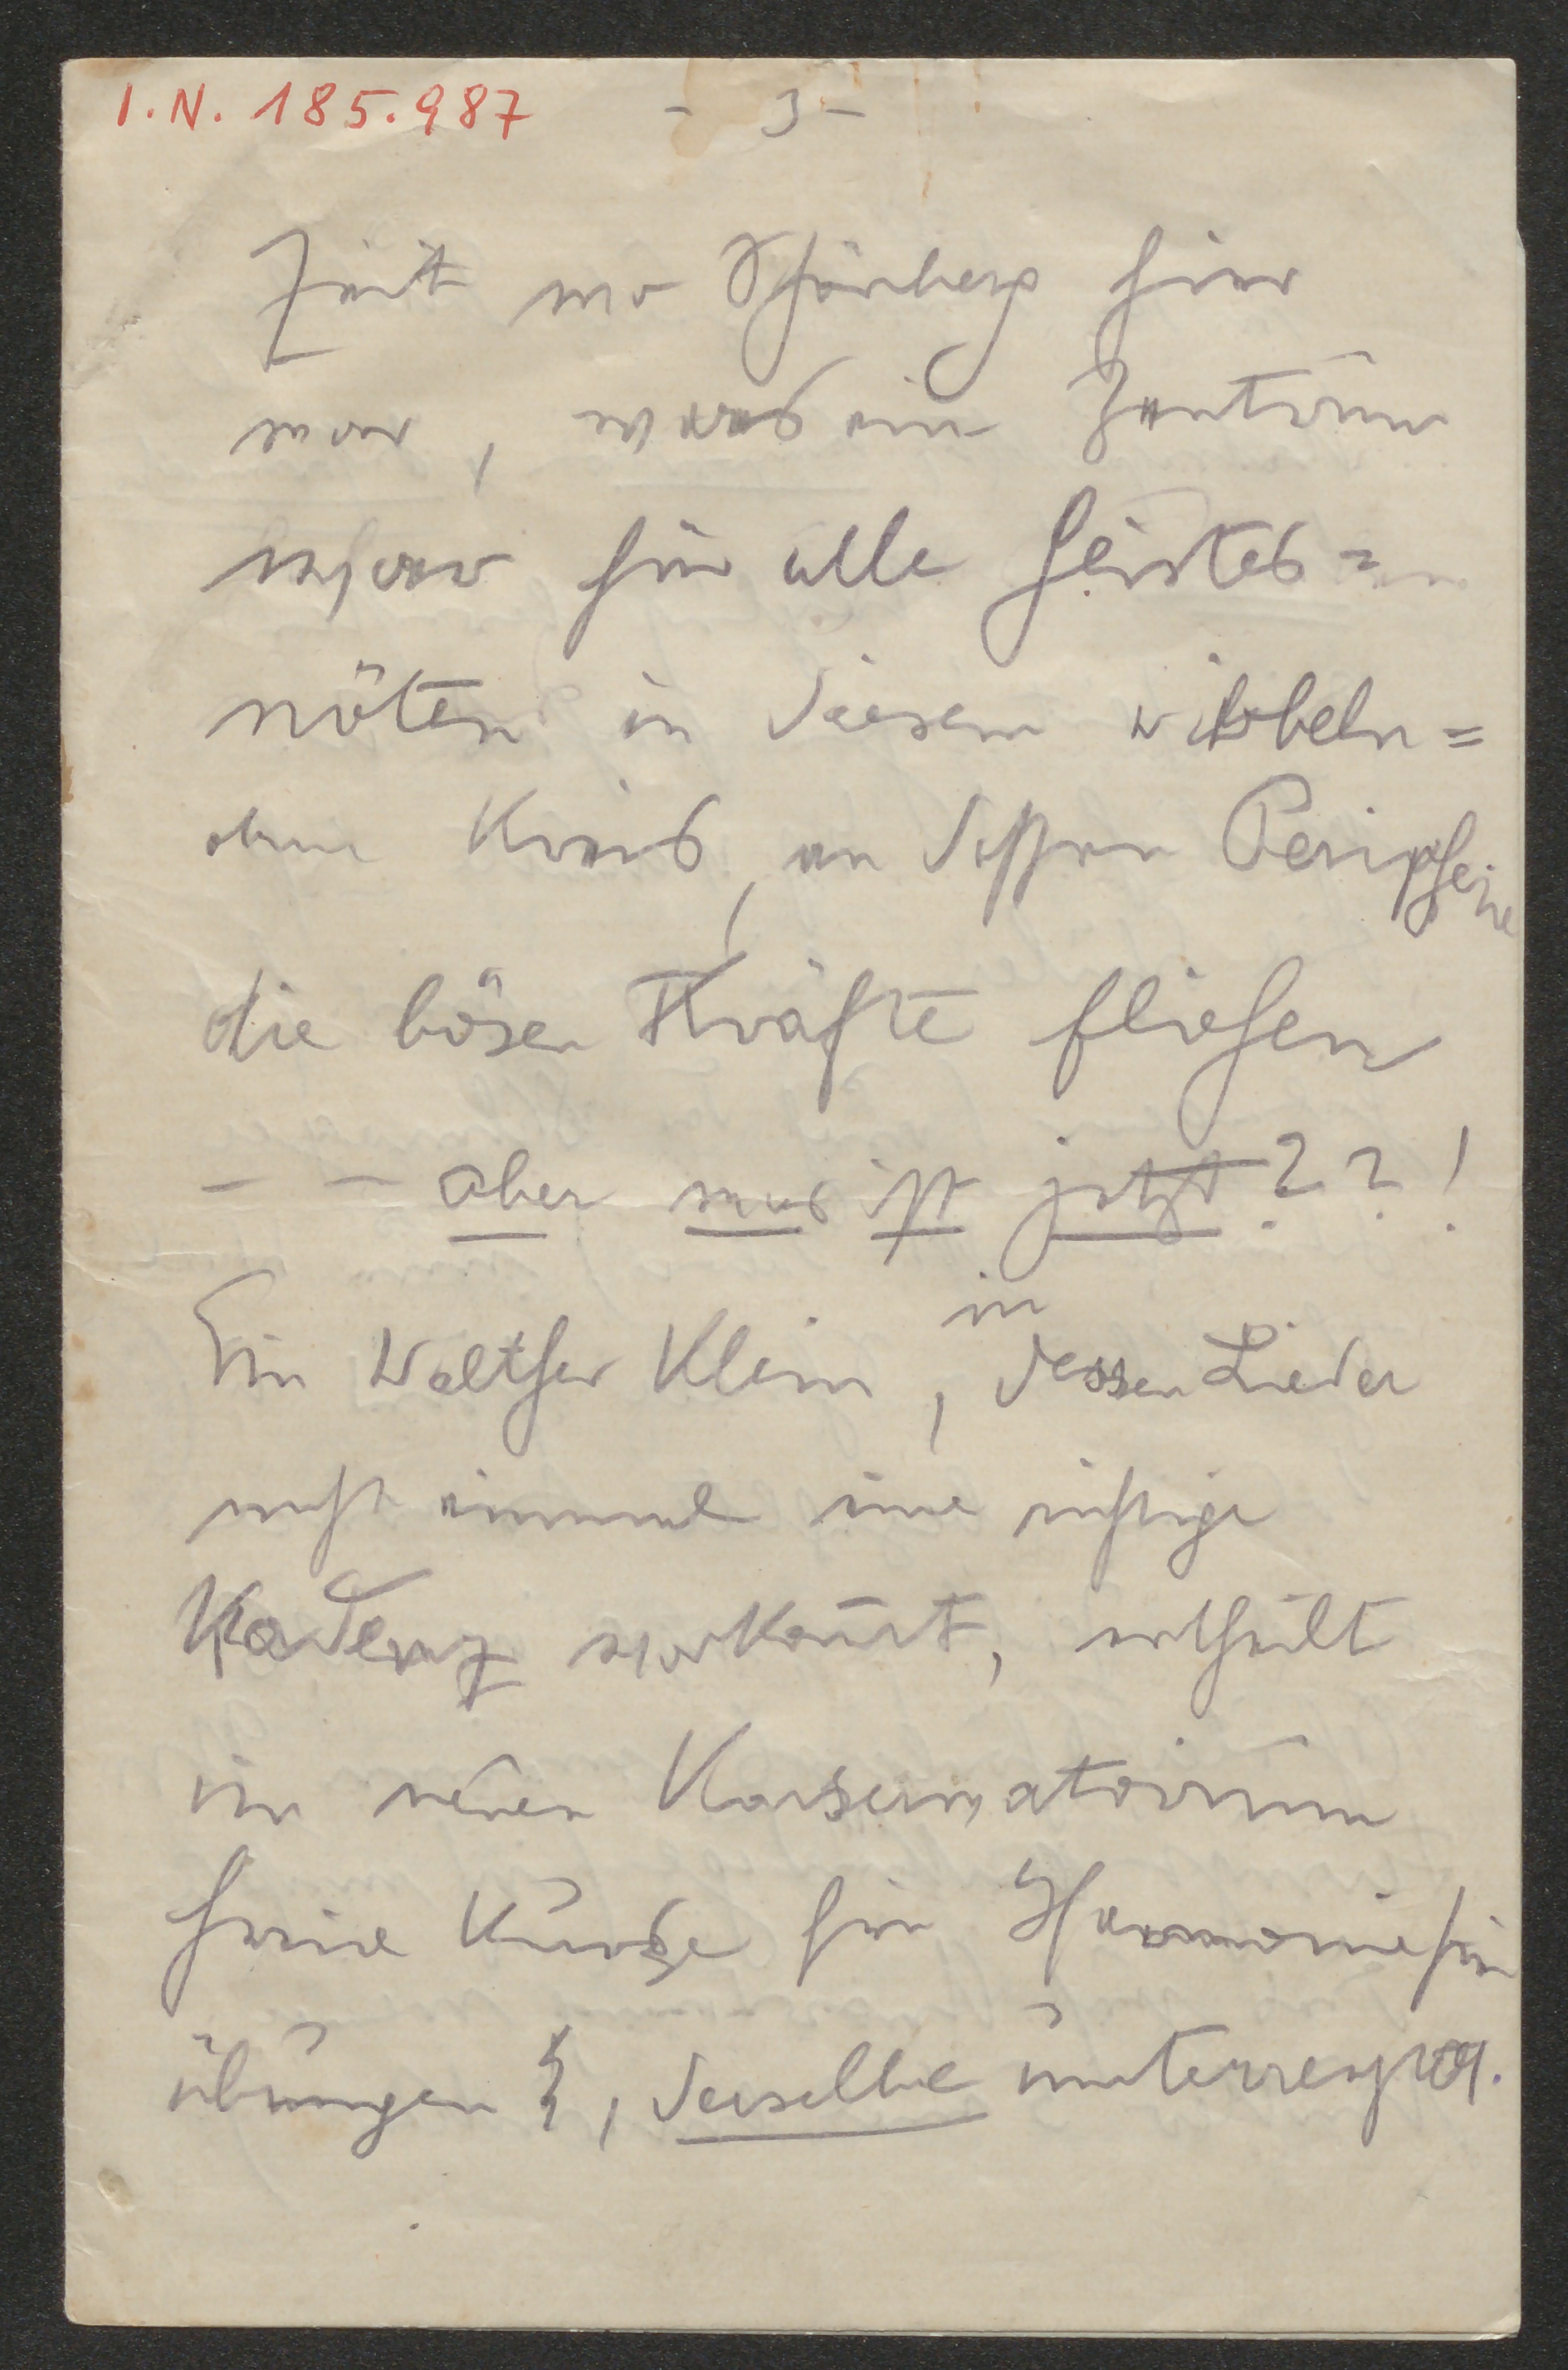 I.N. 185.987
- 3 -
Zeit wo Schönberg hier
war, war es ein Zentrum
für alle Geistes=
nöten in diesem wibbeln=
den Kreis, an dessen Peripherie
die bösen Kräfte fließen
- - aber was ist jetzt ? ? !
Ein Walther Klein, in dessen Lieder
nicht einmal eine richtige
Kadenz vorkom̄t, ertheilt
im neuen Konservatorium
freie Kurse für Harmonie für
übungen , derselbe